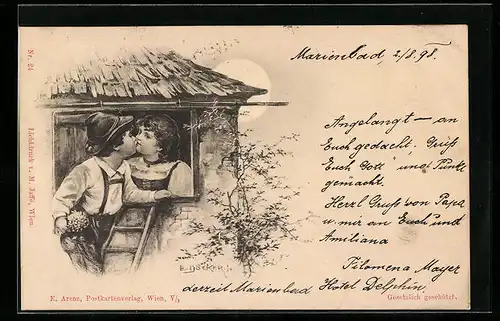 Nr. 24
Lichtdruck v. M. Jaffé, Wien
Marienbad, 2/8.98.
Angelangt – an
Euch gedacht. Grüß
Euch Gott und Punkt
gemacht.
Herzl Gruß von Papa
u mir an Euch und
Amiliana
Filomena Mayer
derzeit Marienbad Hotel Delphin.
E. DÖCKER
E. Arenz, Postkartenverlag, Wien, V/1
Gesetzlich geschützt.